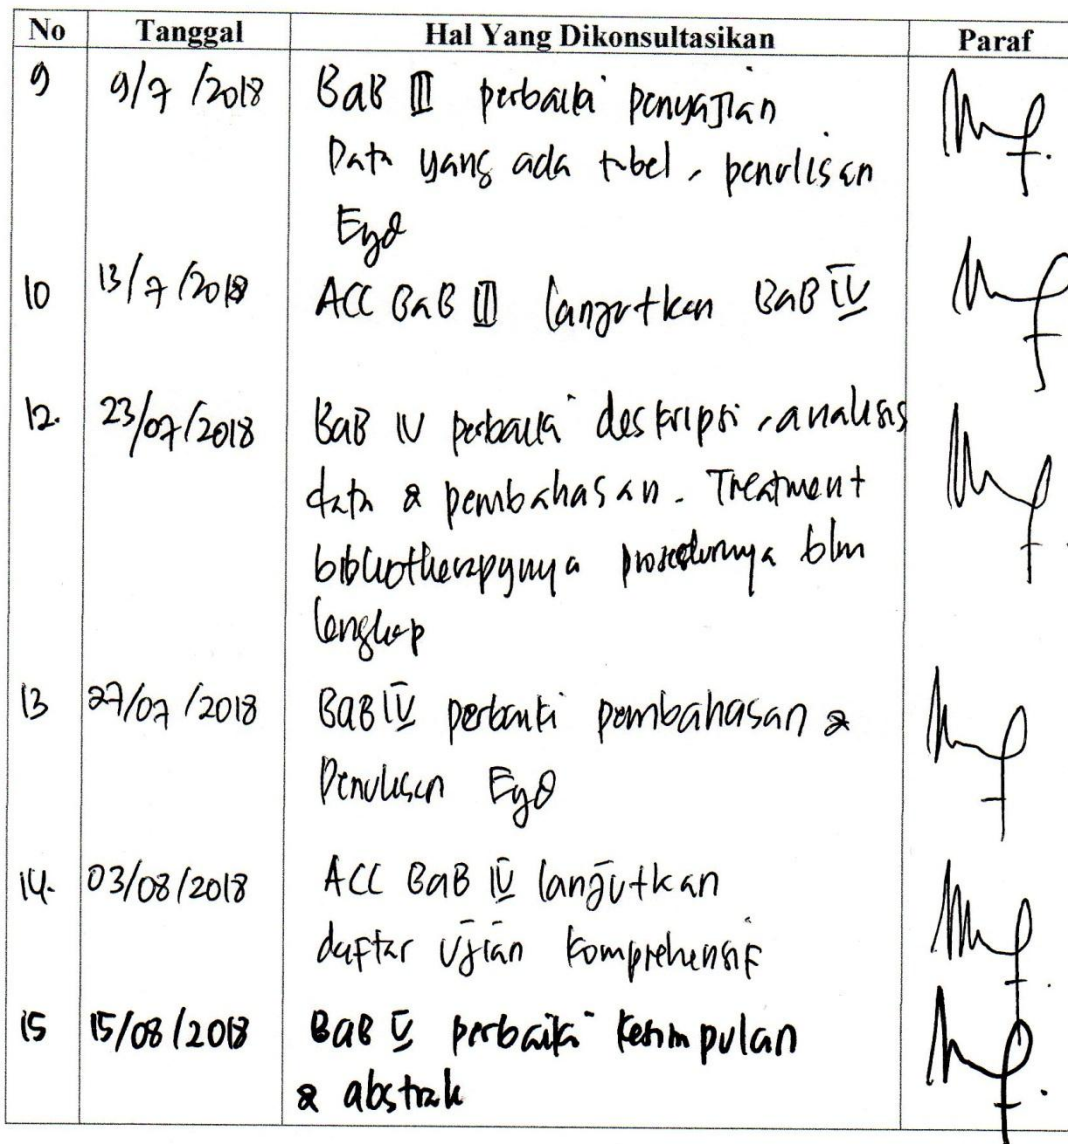 No Tanggal Hal Yang Dikonsultasikan Paraf
9 9/7/2018 BaB III perbaiki penyajian
Data yang ada tabel, penulisan
Eyd
10 13/7/2018 ACC BaB III lanjutkan BaB IV
12. 23/07/2018 BaB IV perbaiki deskripsi, analisis
data & pembahasan. Treatment
bibliotherapynya prosedurnya blm
lengkap
13 27/07/2018 BaB IV perbaiki pembahasan &
Penulisan Eyd
14. 03/08/2018 ACC BaB IV lanjutkan
daftar Ujian Komprehensif
15 15/08/2018 BaB V perbaiki kesimpulan
& abstrak